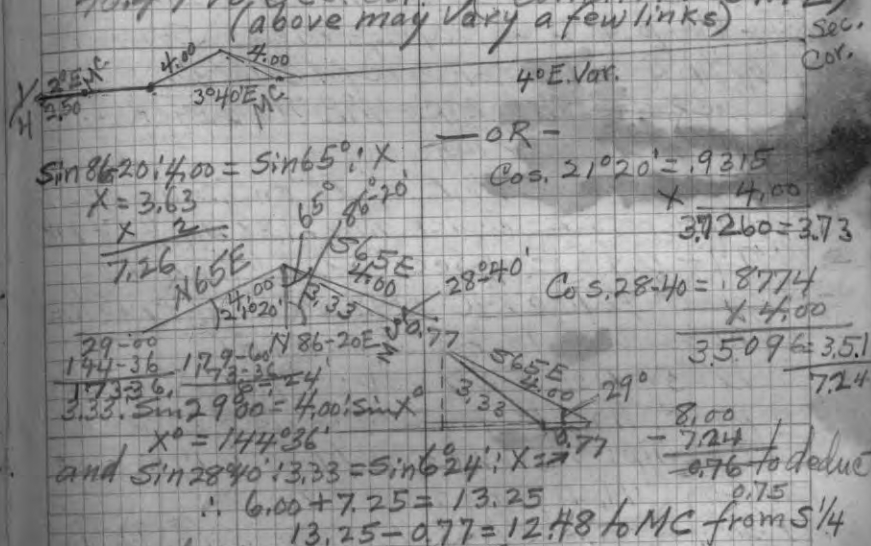 (above may vary a few links)
Sec.
Cor.
4.00
4.00
2°E MC
1/4
2.50
3°40'E
MC
4°E.Var.
— OR —
Sin 86-20 : 4.00 = Sin 65° : X
X = 3.63
X 2
7.26
Cos. 21°20' = .9315
X 4.00
3.7260 = 3.73
65°
86°-20'
N65E
4.00
21°20'
S65E
4.00
3.33
28°40'
0.77
N 86-20E
Cos. 28-40 = .8774
X 4.00
3.5096 = 3.51
7.24
29-00
144-36
173-36
179-60
173-36
6°-24'
S65E
4.00
3.33
29°
0.77
3.33 : Sin 29°00' = 4.00 : Sin X°
X° = 144°36'
8.00
- 7.24
0.76 to deduc
0.75
and Sin 28°40' : 3.33 = Sin 6°24' : X = .77
∴ 6.00 + 7.25 = 13.25
13.25 - 0.77 = 12.48 to MC from S 1/4